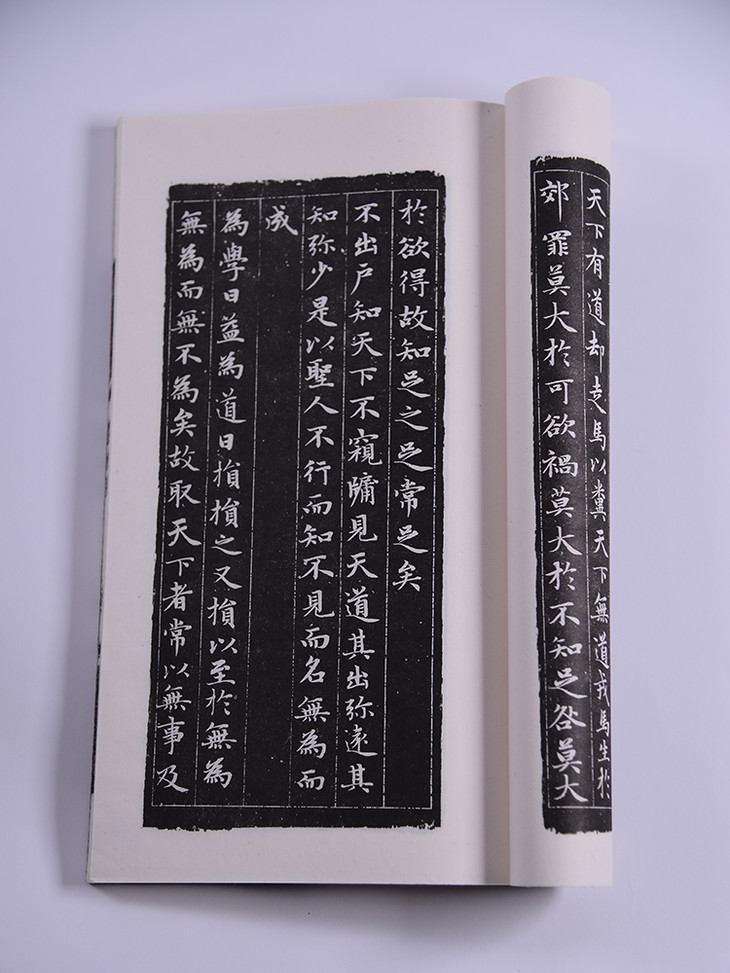 天下有道却走馬以糞天下無道戎馬生於
郊罪莫大於可欲禍莫大於不知足咎莫大
於欲得故知足之足常足矣
不出戶知天下不窺牖見天道其出弥遠其
知弥少是以聖人不行而知不見而名無為而
成
為學日益為道日損損之又損以至於無為
無為而無不為矣故取天下者常以無事及